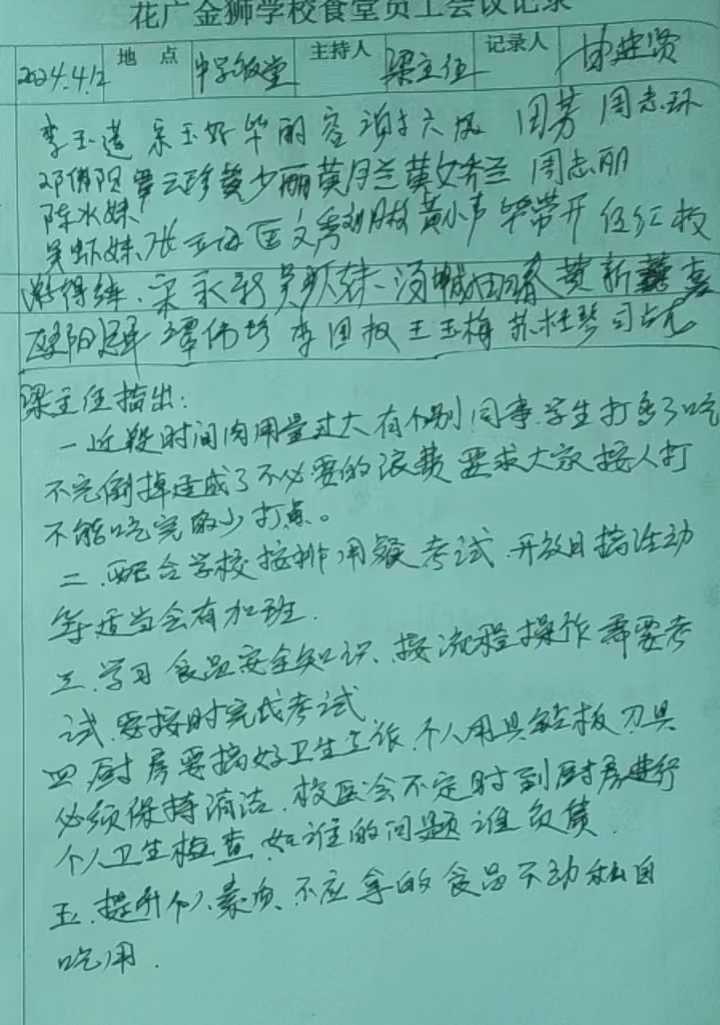 花广金狮学校食堂员工会议记录
2024.4.12 地点 中学饭堂 主持人 梁主任 记录人
李玉莲 宋玉好 毕丽容 谢 周芳 周志环
邓 覃云珍 黄少丽 莫月兰 莫文秀兰 周志丽
陈水妹
吴虾妹 张 文秀 刘 黄小 毕带开 伍红枝
谢得 宋永彩 吴 汤 黄新
欧阳 谭伟珍 李国权 王玉梅 苏桂琴
梁主任指出:
一近段时间肉用量过大有个别同事.学生打多了吃
不完倒掉造成了不必要的浪费要求大家按人打
不能吃完的少打点。
二.配合学校按排用餐考试.开放日搞活动
等适当会有加班.
三.学习食品安全知识、按流程操作需要考
试.要按时完成考试
四厨房要搞好卫生工作.个人用具砧板刀具
必须保持清洁.校医会不定时到厨房进行
个人卫生检查.如谁的问题谁负责.
五.提升个人素质、不应拿的食品不动私自
吃用.